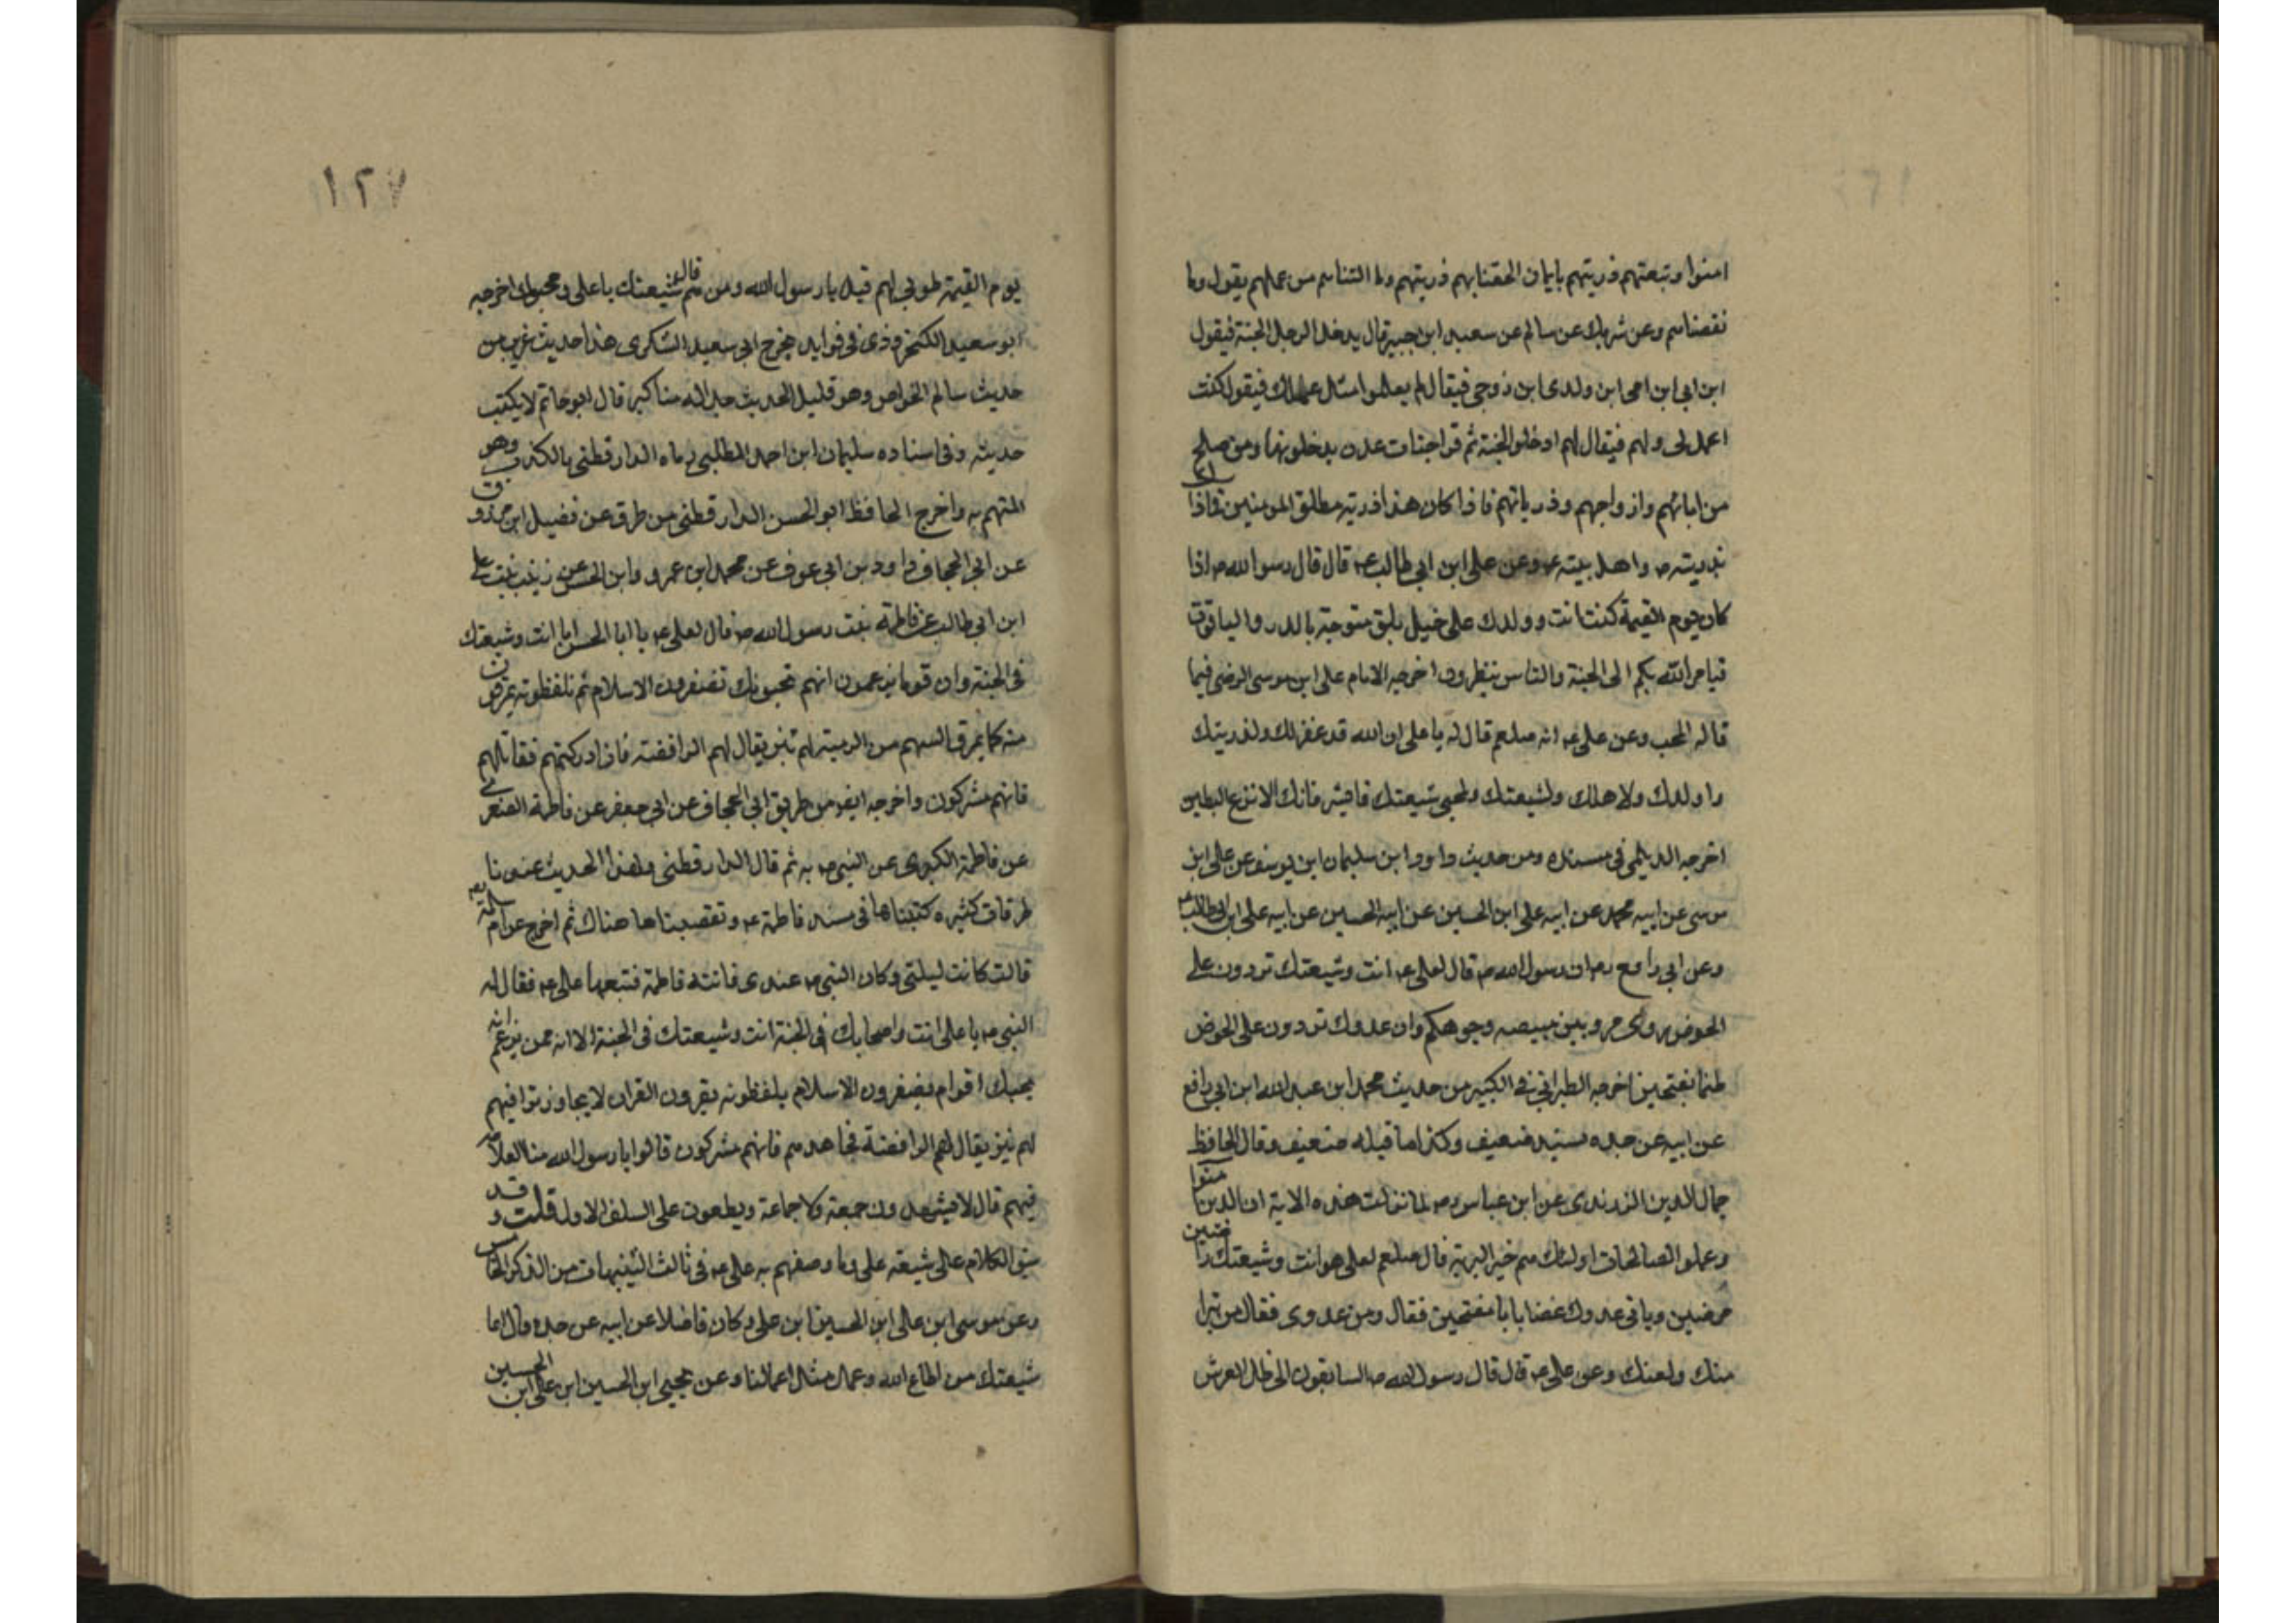 امنوا وتبعتهم ذريتهم بايمان الحقنا بهم ذريتهم وما التناهم من عملهم يقول وما
نقصناهم وعن شريك عن سالم عن سعيد ابن جبير قال يدخل الرجل الجنة فيقول
ابن ابي ابن امي ابن ولدي ابن زوجي فيقال لم يعملوا مثل عملك فيقول كنت
اعمل لي ولهم فيقال لهم ادخلوا الجنة ثم قرا جنات عدن يدخلونها ومن صلح
من ابائهم وازواجهم وذرياتهم فاذا كان هذا في ذرية مطلق المومنين فما ذا
بذريته ص واهل بيته ع وعن علي ابن ابي طالب ع قال قال رسول الله ص اذا
كان يوم القيمة كنت انت وولدك على خيل بلق متوجة بالدر والياقوت
فيامر الله بكم الى الجنة والناس ينظرون اخرجه الامام علي ابن موسى الرضى فيما
قاله المحب وعن علي ع انه صلعم قال له يا علي ان الله قد غفر لك ولذريتك
واولدك ولاهلك ولشيعتك ولمحبي شيعتك فابشر فانك الانزع البطين
اخرجه الديلمي في مسنده ومن حديث داوود ابن سليمان ابن يوسف عن علي ابن
موسى عن ابيه محمد عن ابيه علي ابن الحسين عن ابيه الحسين عن ابيه علي ابن ابي طالب ع
وعن ابي رافع رض ان رسول الله ص قال لعلي ع انت وشيعتك تردون علي
الحوض رواء مرويين مبيضه وجوهكم وان عدوك تردون على الحوض
ظما بفتحين اخرجه الطبراني في الكبير من حديث محمد ابن عبد الله ابن ابي رافع
عن ابيه عن جده بسند ضعيف وكذا ما قبله ضعيف وقال الحافظ
جمال الدين الزرندي عن ابن عباس رض لما نزلت هذه الاية ان الذين امنوا
وعملوا الصالحات اولئك هم خير البرية قال صلعم لعلي هو انت وشيعتك راضين
مرضيين وياتي عدوك غضابا مفتحين فقال ومن عدوي فقال من تبرا
منك ولعنك وعن علي ع قال قال رسول الله ص السابقون الى ظل العرش
١٢٧
يوم القيمة طوبى لهم قيل يا رسول الله ومن هم قال شيعتك يا علي ومحبوك اخرجه
ابو سعيد الكنجروذي في فوايد تخرج ابي سعيد الشكري هذا حديث غريب من
حديث سالم الخواص وهو قليل الحديث جل اله مناكير قال ابو حاتم لا يكتب
حديثه وفي اسناده سليمان ابن احمد المطلبي رماه الدارقطني بالكذب وهو
المتهم به واخرج الحافظ ابو الحسن الدارقطني من طرق عن فضيل ابن مرزوق
عن ابي الحجاف داود بن ابي عوف عن محمد ابن عمرو وابن الحسن عن زينب بنت علي
ابن ابي طالب عن فاطمة بنت رسول الله ص قال لعلي ع يا ابا الحسن اما انت وشيعتك
في الجنة وان قوما يزعمون انهم تحبونك تصفرون الاسلام ثم تلفظونه يمرقون
منه كما يمرق السهم من الرمية لهم نبز يقال لهم الرافضة فاذا دركتهم فقاتلهم
فانهم مشركون واخرجه ايض من طريق ابي الحجاف عن ابي جعفر عن فاطمة الصغرى
عن فاطمة الكبرى عن النبي ص به ثم قال الدارقطني ولهذا الحديث عندنا
طرقات كثيره كتبناها في مسند فاطمة ع وتقصيناها هناك ثم اخرج عن ام سلمة رض
قالت كانت ليلتي وكان النبي ص عندي فاتته فاطمة فتبعها علي ع فقال له
النبي ص يا علي انت واصحابك في الجنة انت وشيعتك في الجنة الا انه ممن يزعم انه
يحبك اقوام يصفرون الاسلام يلفظونه يقرون القران لا يجاوز تراقيهم
لهم نبز يقال لهم الرافضة فجاهدهم فانهم مشركون قالوا يا رسول الله ما العلامه
فيهم قال لا يشهدون جمعة ولا جماعة ويطعون على السلف الاول قلت وقد
سبق الكلام على شيعة علي وما وصفهم به علي ع في ثالث التنبيهات من الذكر الخامس
وعن موسى ابن علي ابن الحسين ابن علي وكان فاضلا عن ابيه عن جده قال انما
شيعتك من اطاع الله وعمل مثل اعمالنا وعن يحيى ابن الحسين ابن علي ابن الحسين